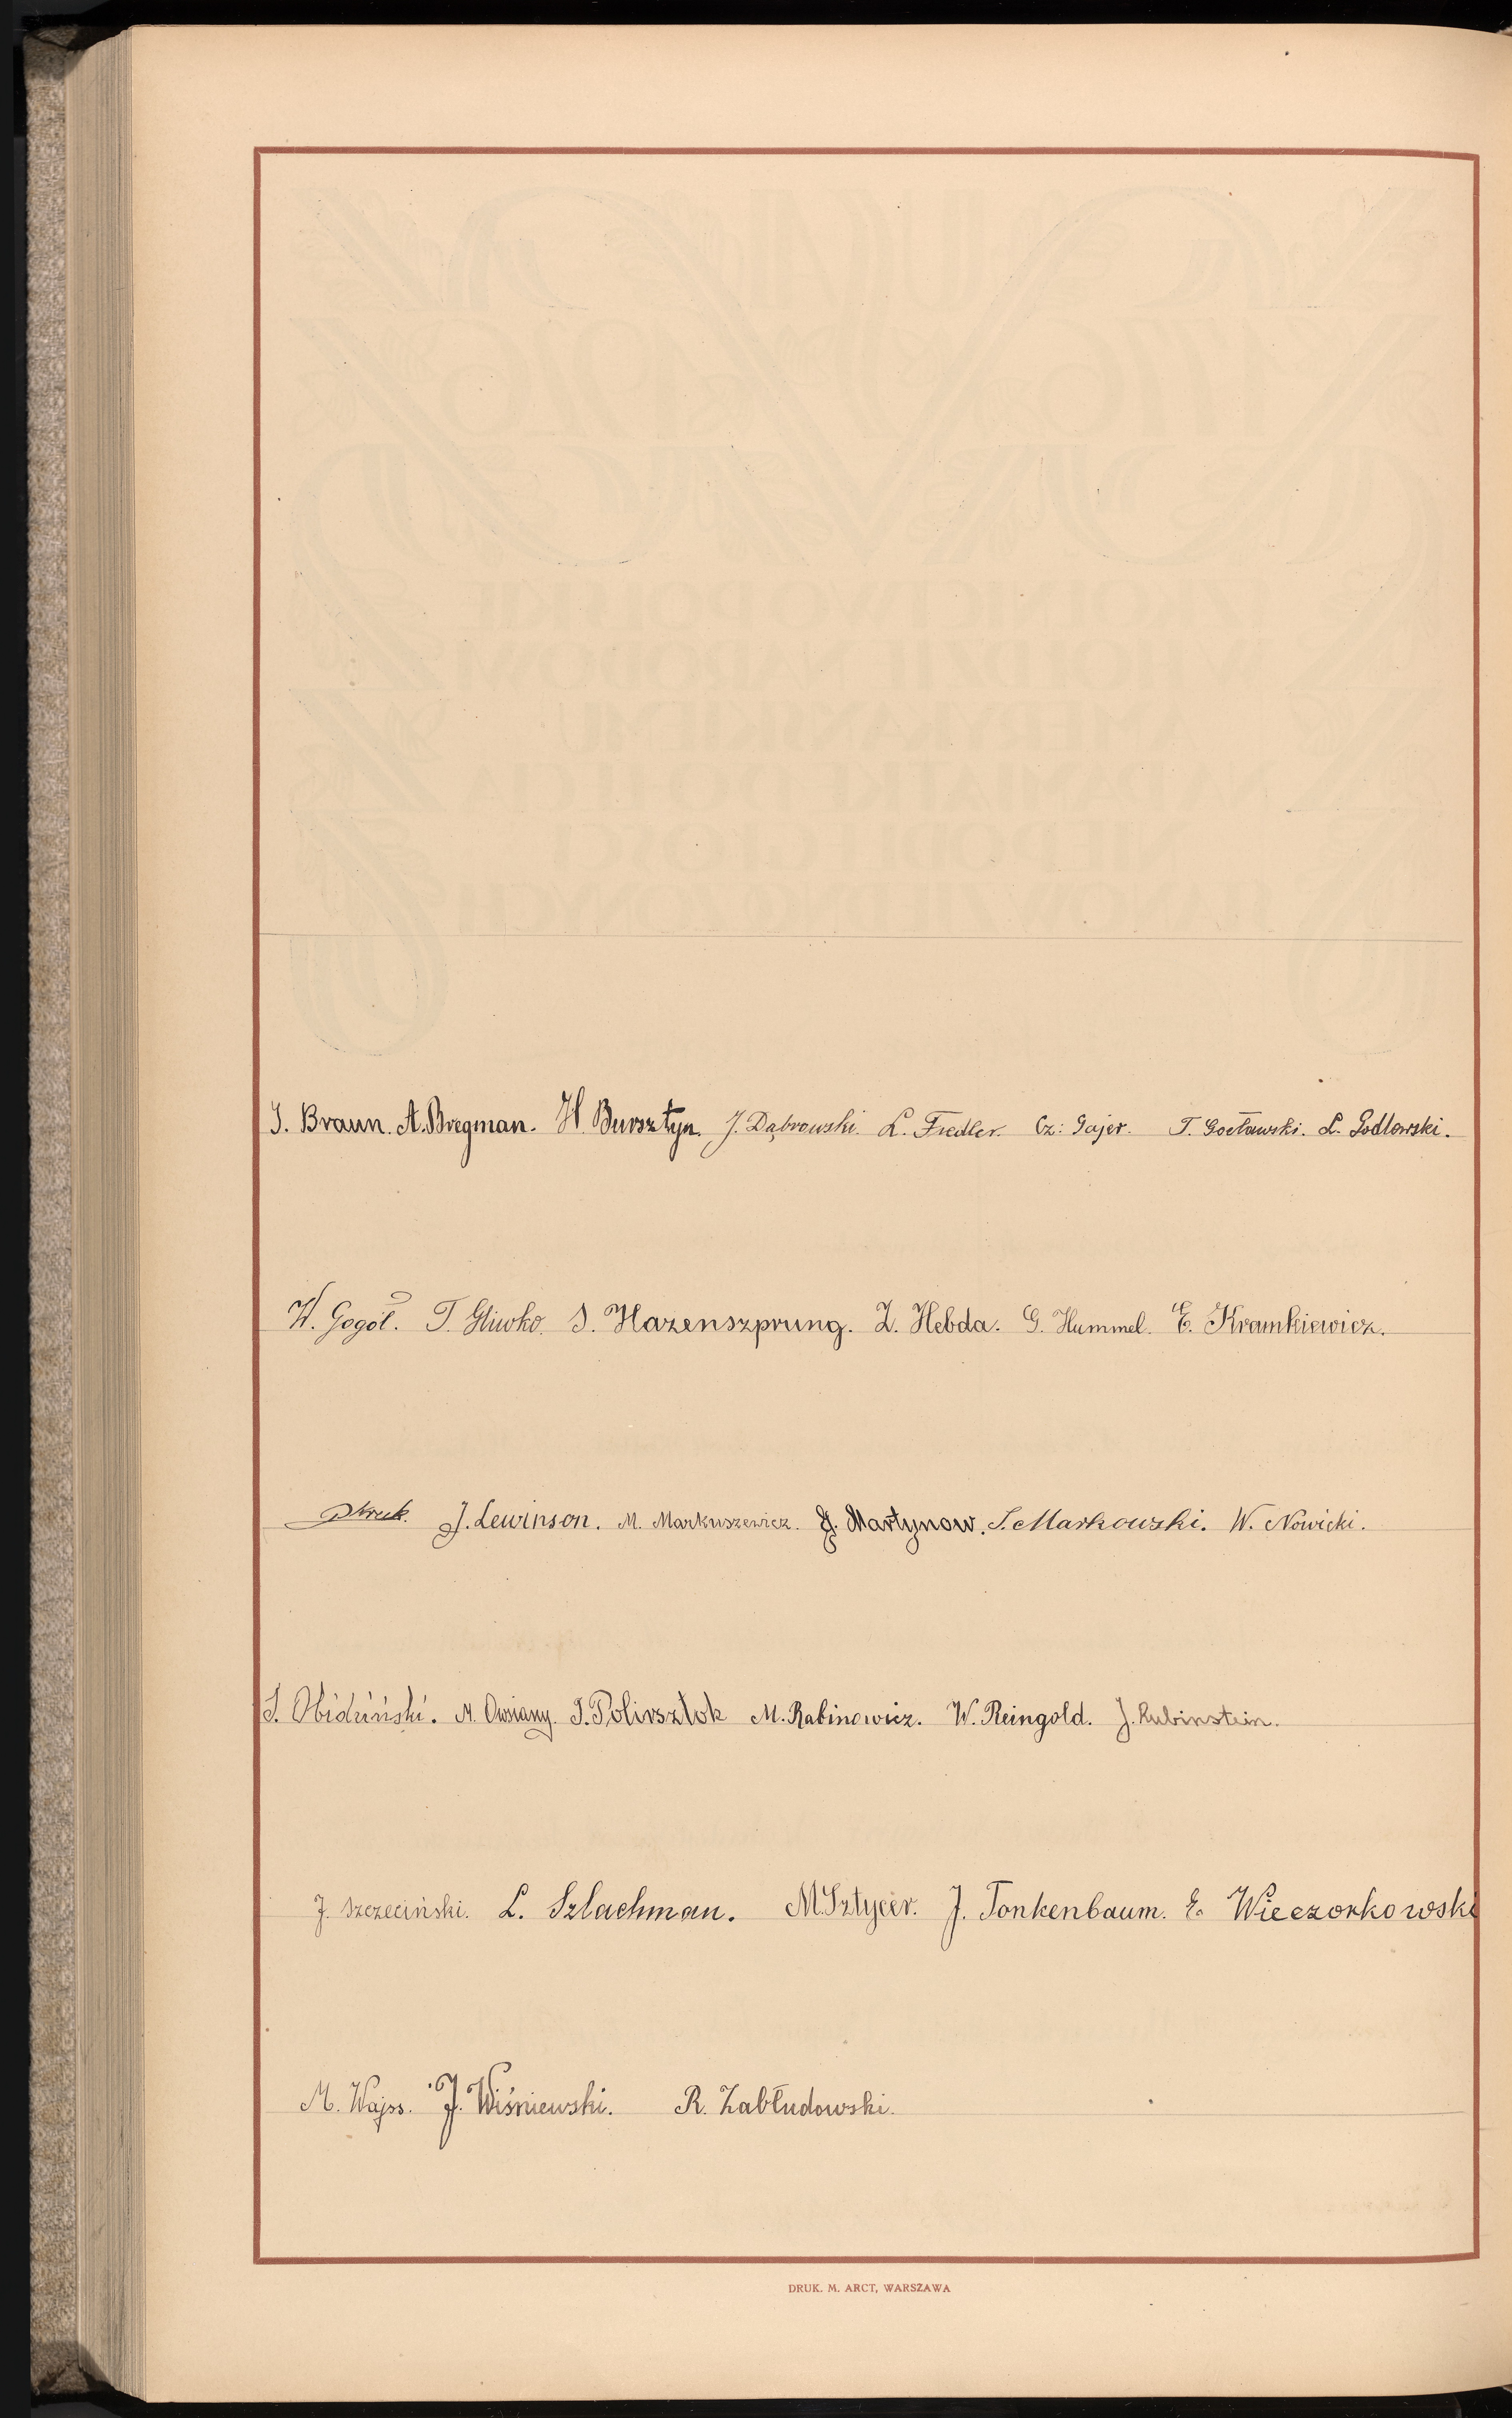 J. Braun. A. Bregman. H. Bursztyn. J. Dąbrowski. L. Fiedler. Cz: Gajer. T. Gocławski. L. Godlowski.
W. Gogół. T. Gliwko. S. Hazenszprung. Z. Hebda. G. Hummel. E. Kramkiewicz.
J. Lewinson. M. Markuszewicz. J. Martynow. S. Markowski. W. Nowicki.
S. Obidziński. M. Owsiany. J. Polirsztok M. Rabinowicz. W. Reingold. J. Rubinstein.
J. Szczeciński. L. Szlachman. M. Sztycer. J. Tonkenbaum. E. Wieczorkowski
M. Wajss. J. Wiśniewski. R. Zabłudowski.
DRUK. M. ARCT, WARSZAWA